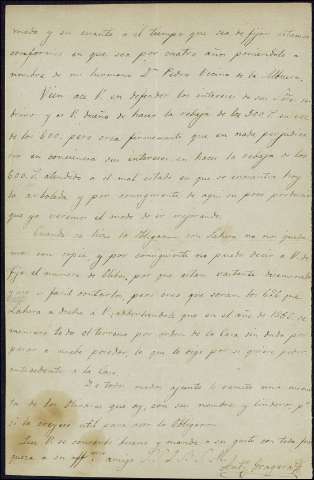 modo y en cuanto a el tiempo que sea de fijar estamos
conformes en que sea por cuatro años poniendolo a
nombre de mi hermano Dn Pedro Vecino de la Albuera.
Vien ace V. en defender los intereses de su Sr.
y es V. dueño de hacer la rebaja de los 300 r. en vez
de los 600, pero crea firmemente que en nada perjudica
en conciencia sus intereses en hacer la rebaja de los
600 r. atendido a el mal estado en que se encuentra hoy
la arboleda y por consiguiente de aqui su poco producto
que ya veremos el modo de ir mejorando.
Cuando se hizo la obligacion con Lahera no nos queda
mos con copia y por consiguiente no puedo decir a V. de
fijo el numero de Olibos, por que estan bastante
y no es facil contarlos, pero creo que seran los 626 que
Lahera a dicho a V., advirtiendole que en el año de 1865 se
todo el terreno por orden de la Casa sin duda por
pasar a nuebo poseedor, lo que le digo por si quiere pedir
antecedente a la Casa.
De todos modos ajunto le remito una nota
de los Olivares que ay, con sus nombres y linderos por
si la creyese util para acer la obligacion.
Que V. se conserbe bueno y mande a su gusto con toda fran
queza a su affmo. amigo Q. B. S. M.